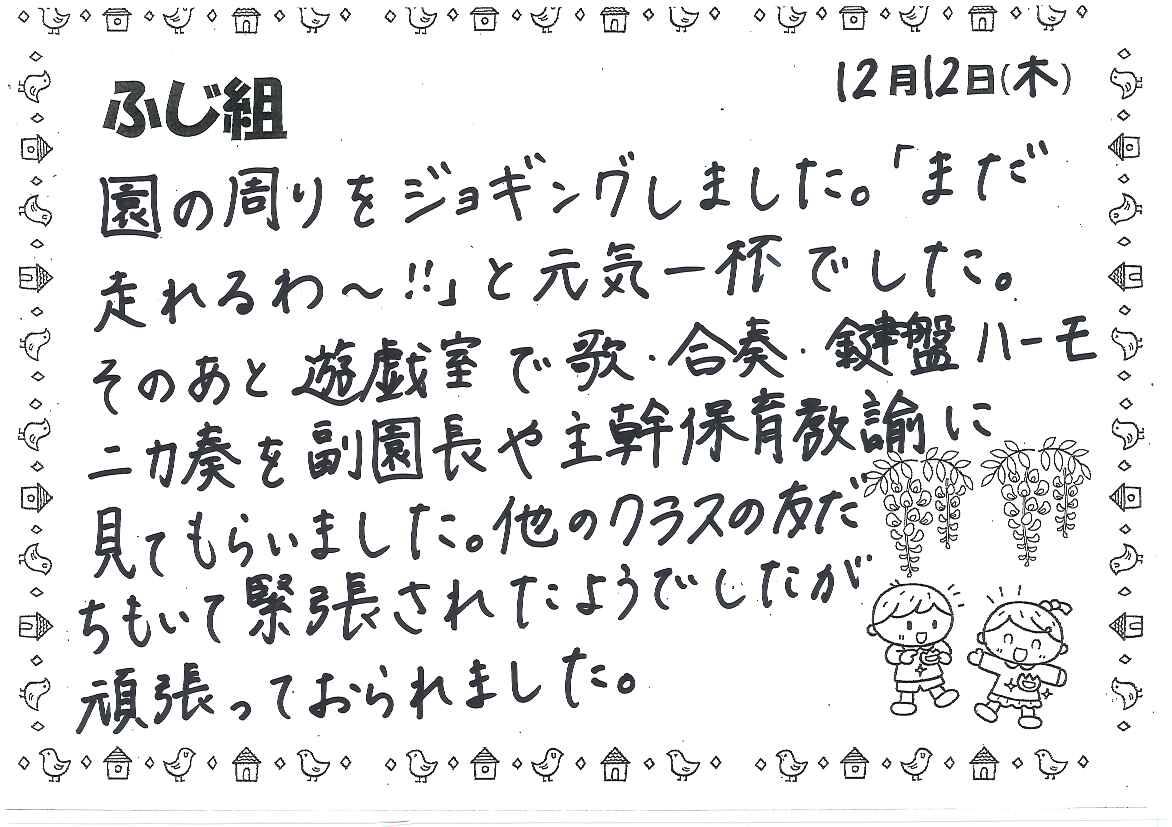 ふじ組
12月12日(木)
園の周りをジョギングしました。「まだ
走れるわ〜!!」と元気一杯でした。
そのあと遊戯室で歌・合奏・鍵盤ハーモ
ニカ奏を副園長や主幹保育教諭に
見てもらいました。他のクラスの友だ
ちもいて緊張されたようでしたが
頑張っておられました。